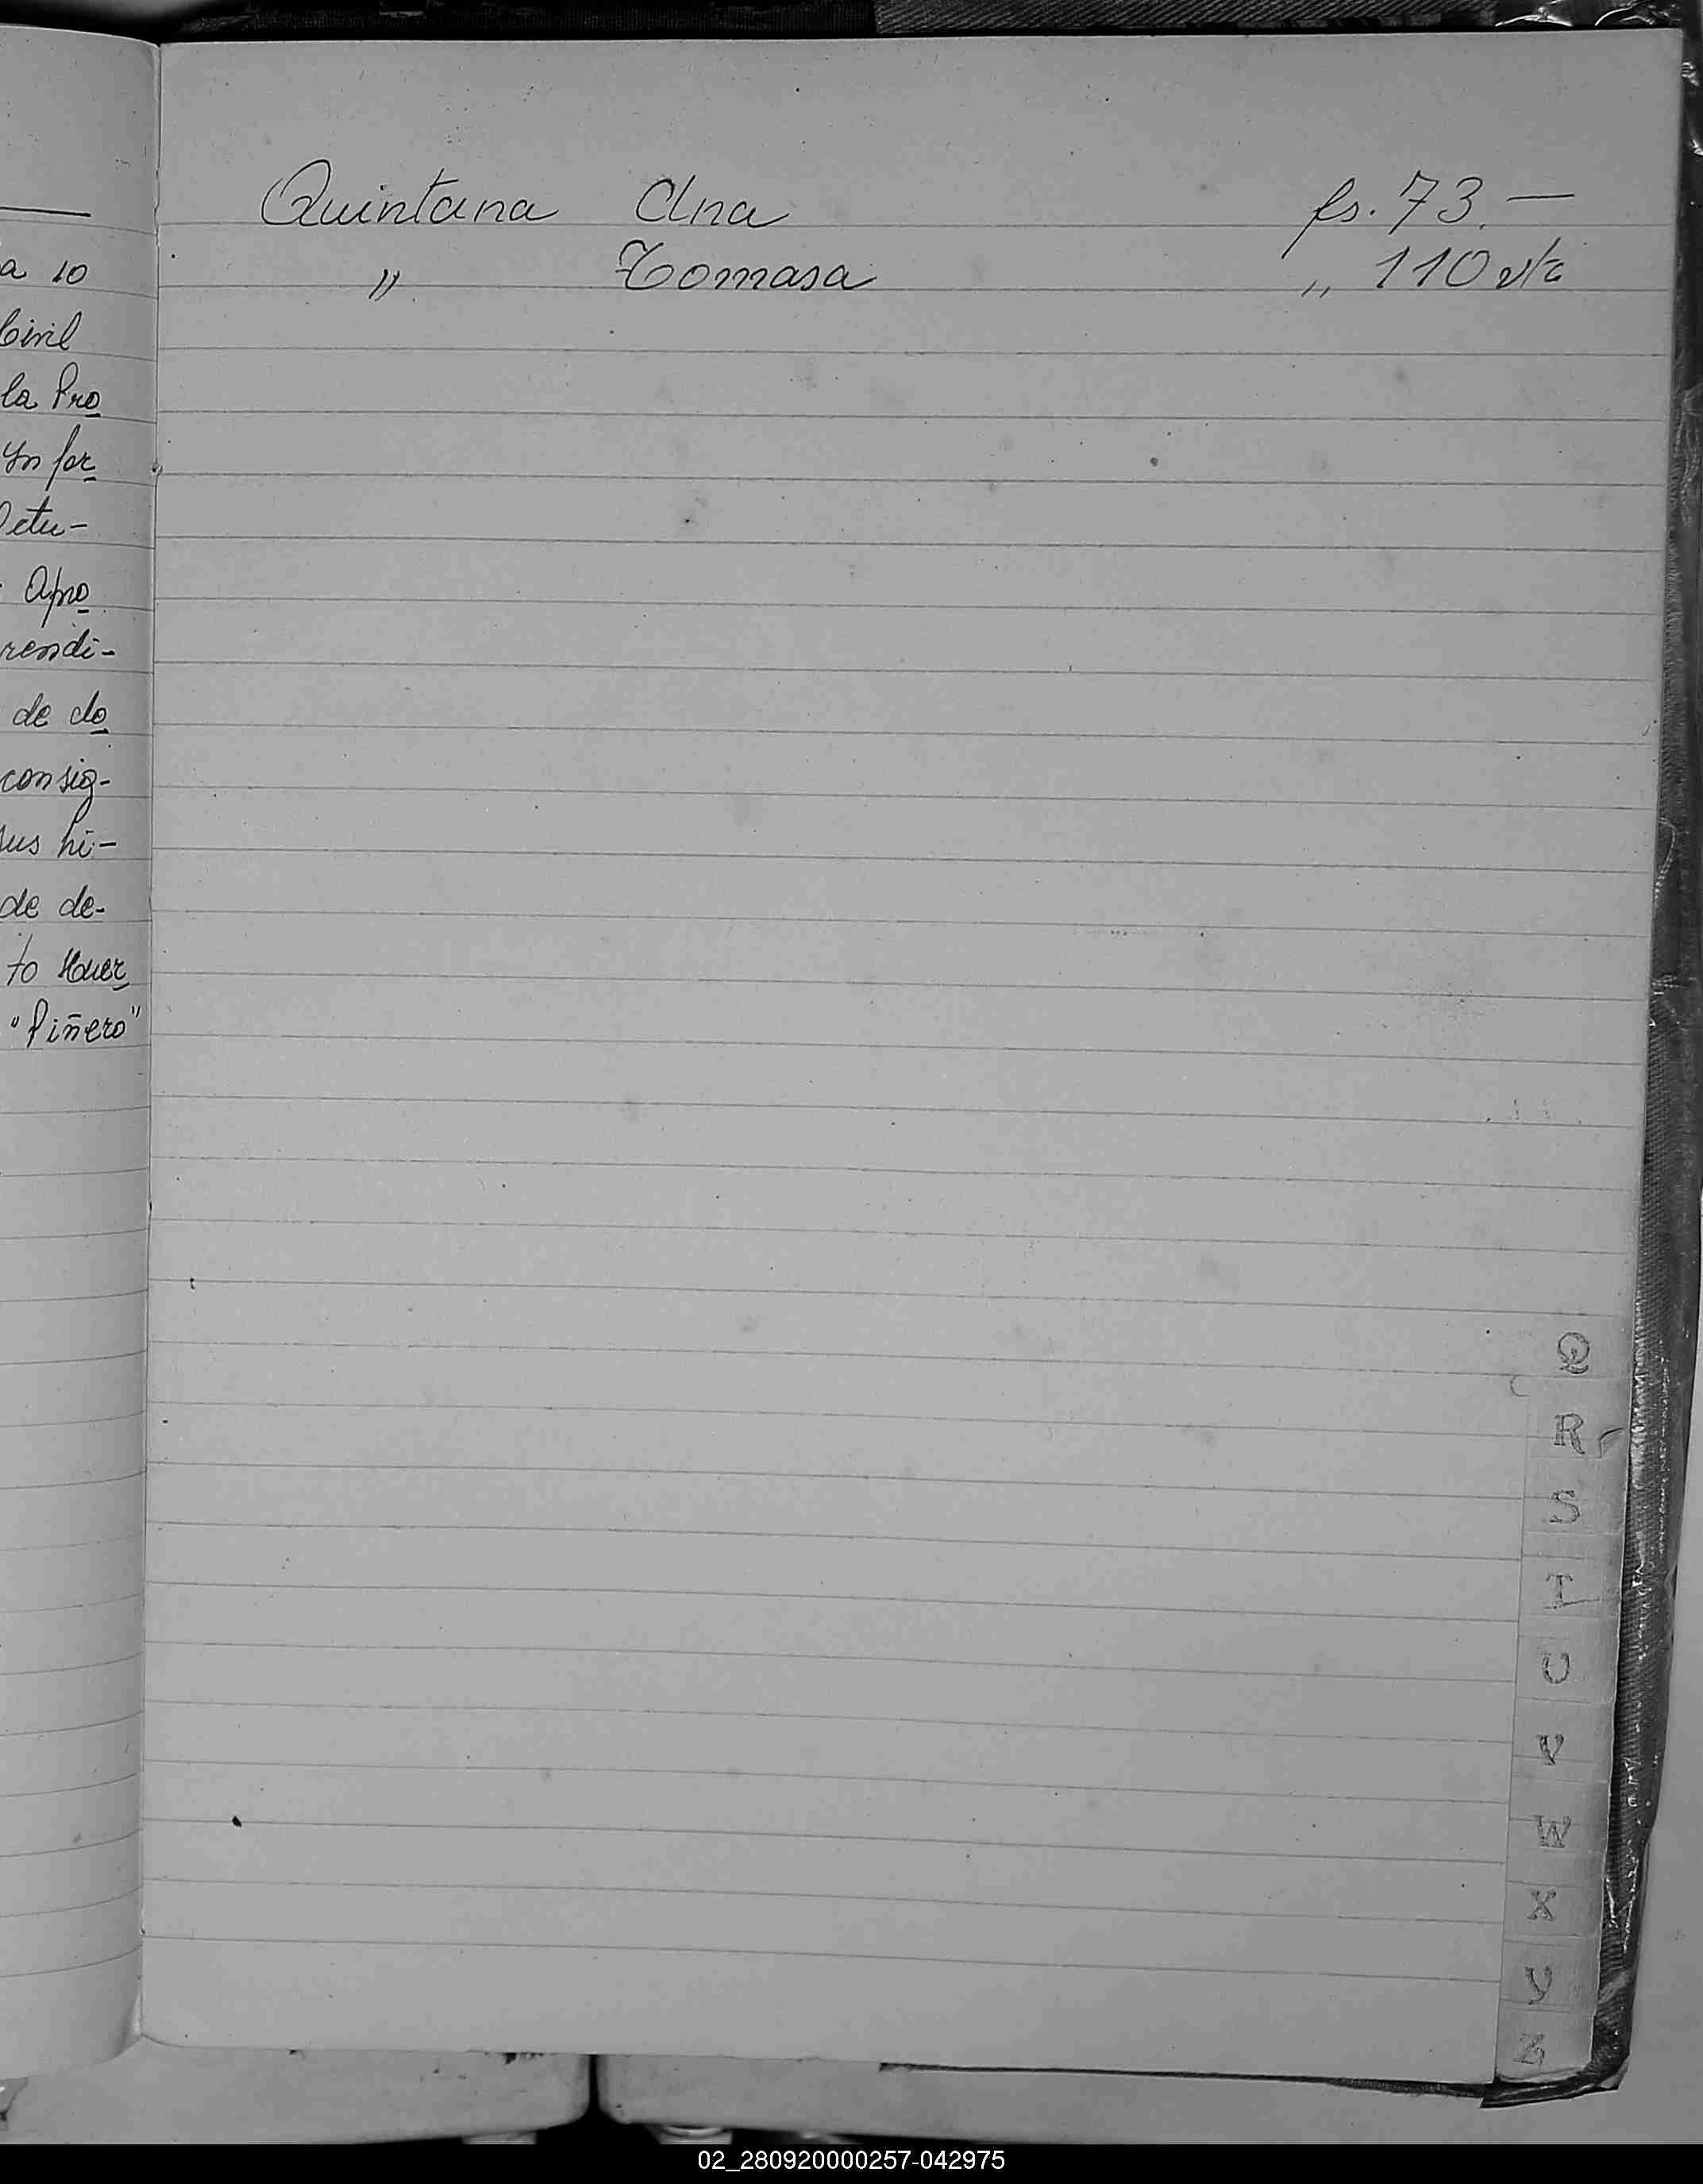 a 10
Civil
la Pro
Infor
Actu-
Apro
rendi-
de do
consig-
sus hi-
de de-
to
"Piñero"
Quintana Ana fs. 73.—
" Tomasa " 110 vta
Q
R
S
T
U
V
W
X
Y
Z
02_280920000257-042975